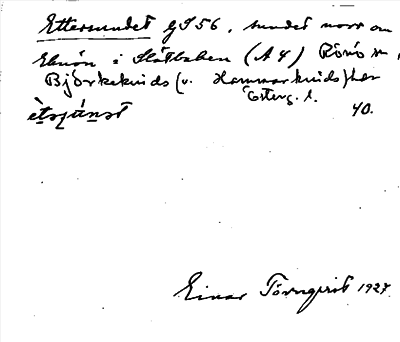 Ettersundet GS56, sundet norr om
Elmön i Slätbaken (A4) Rönö sn,
Björkekinds (v. Hammarkinds) hær
Österg. l. 40.
Einar Törnqvist 1927